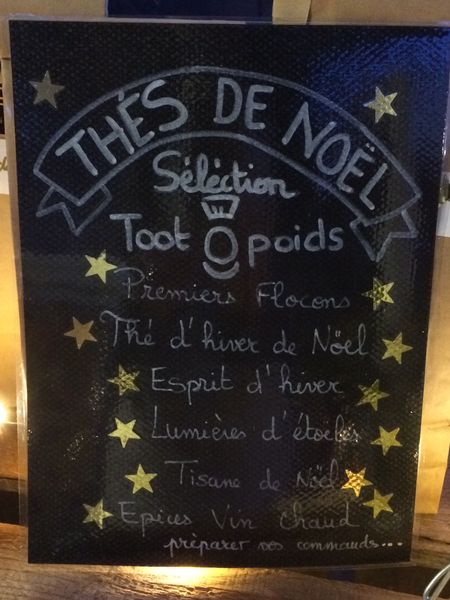 THÉS DE NOËL
Séléction
Toot O poids
Premiers Flocons
Thé d'hiver de Nöel
Esprit d'hiver
Lumières d'étoiles
Tisane de Nöel
Epices Vin chaud
préparer vos commands...